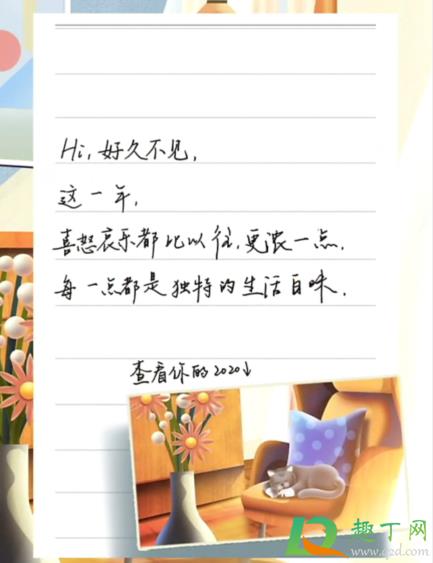 Hi,好久不见,
这一年,
喜怒哀乐都比以往,更浓一点,
每一点都是独特的生活百味,
查看你的2020↓
趣丁网
www.qzd.com